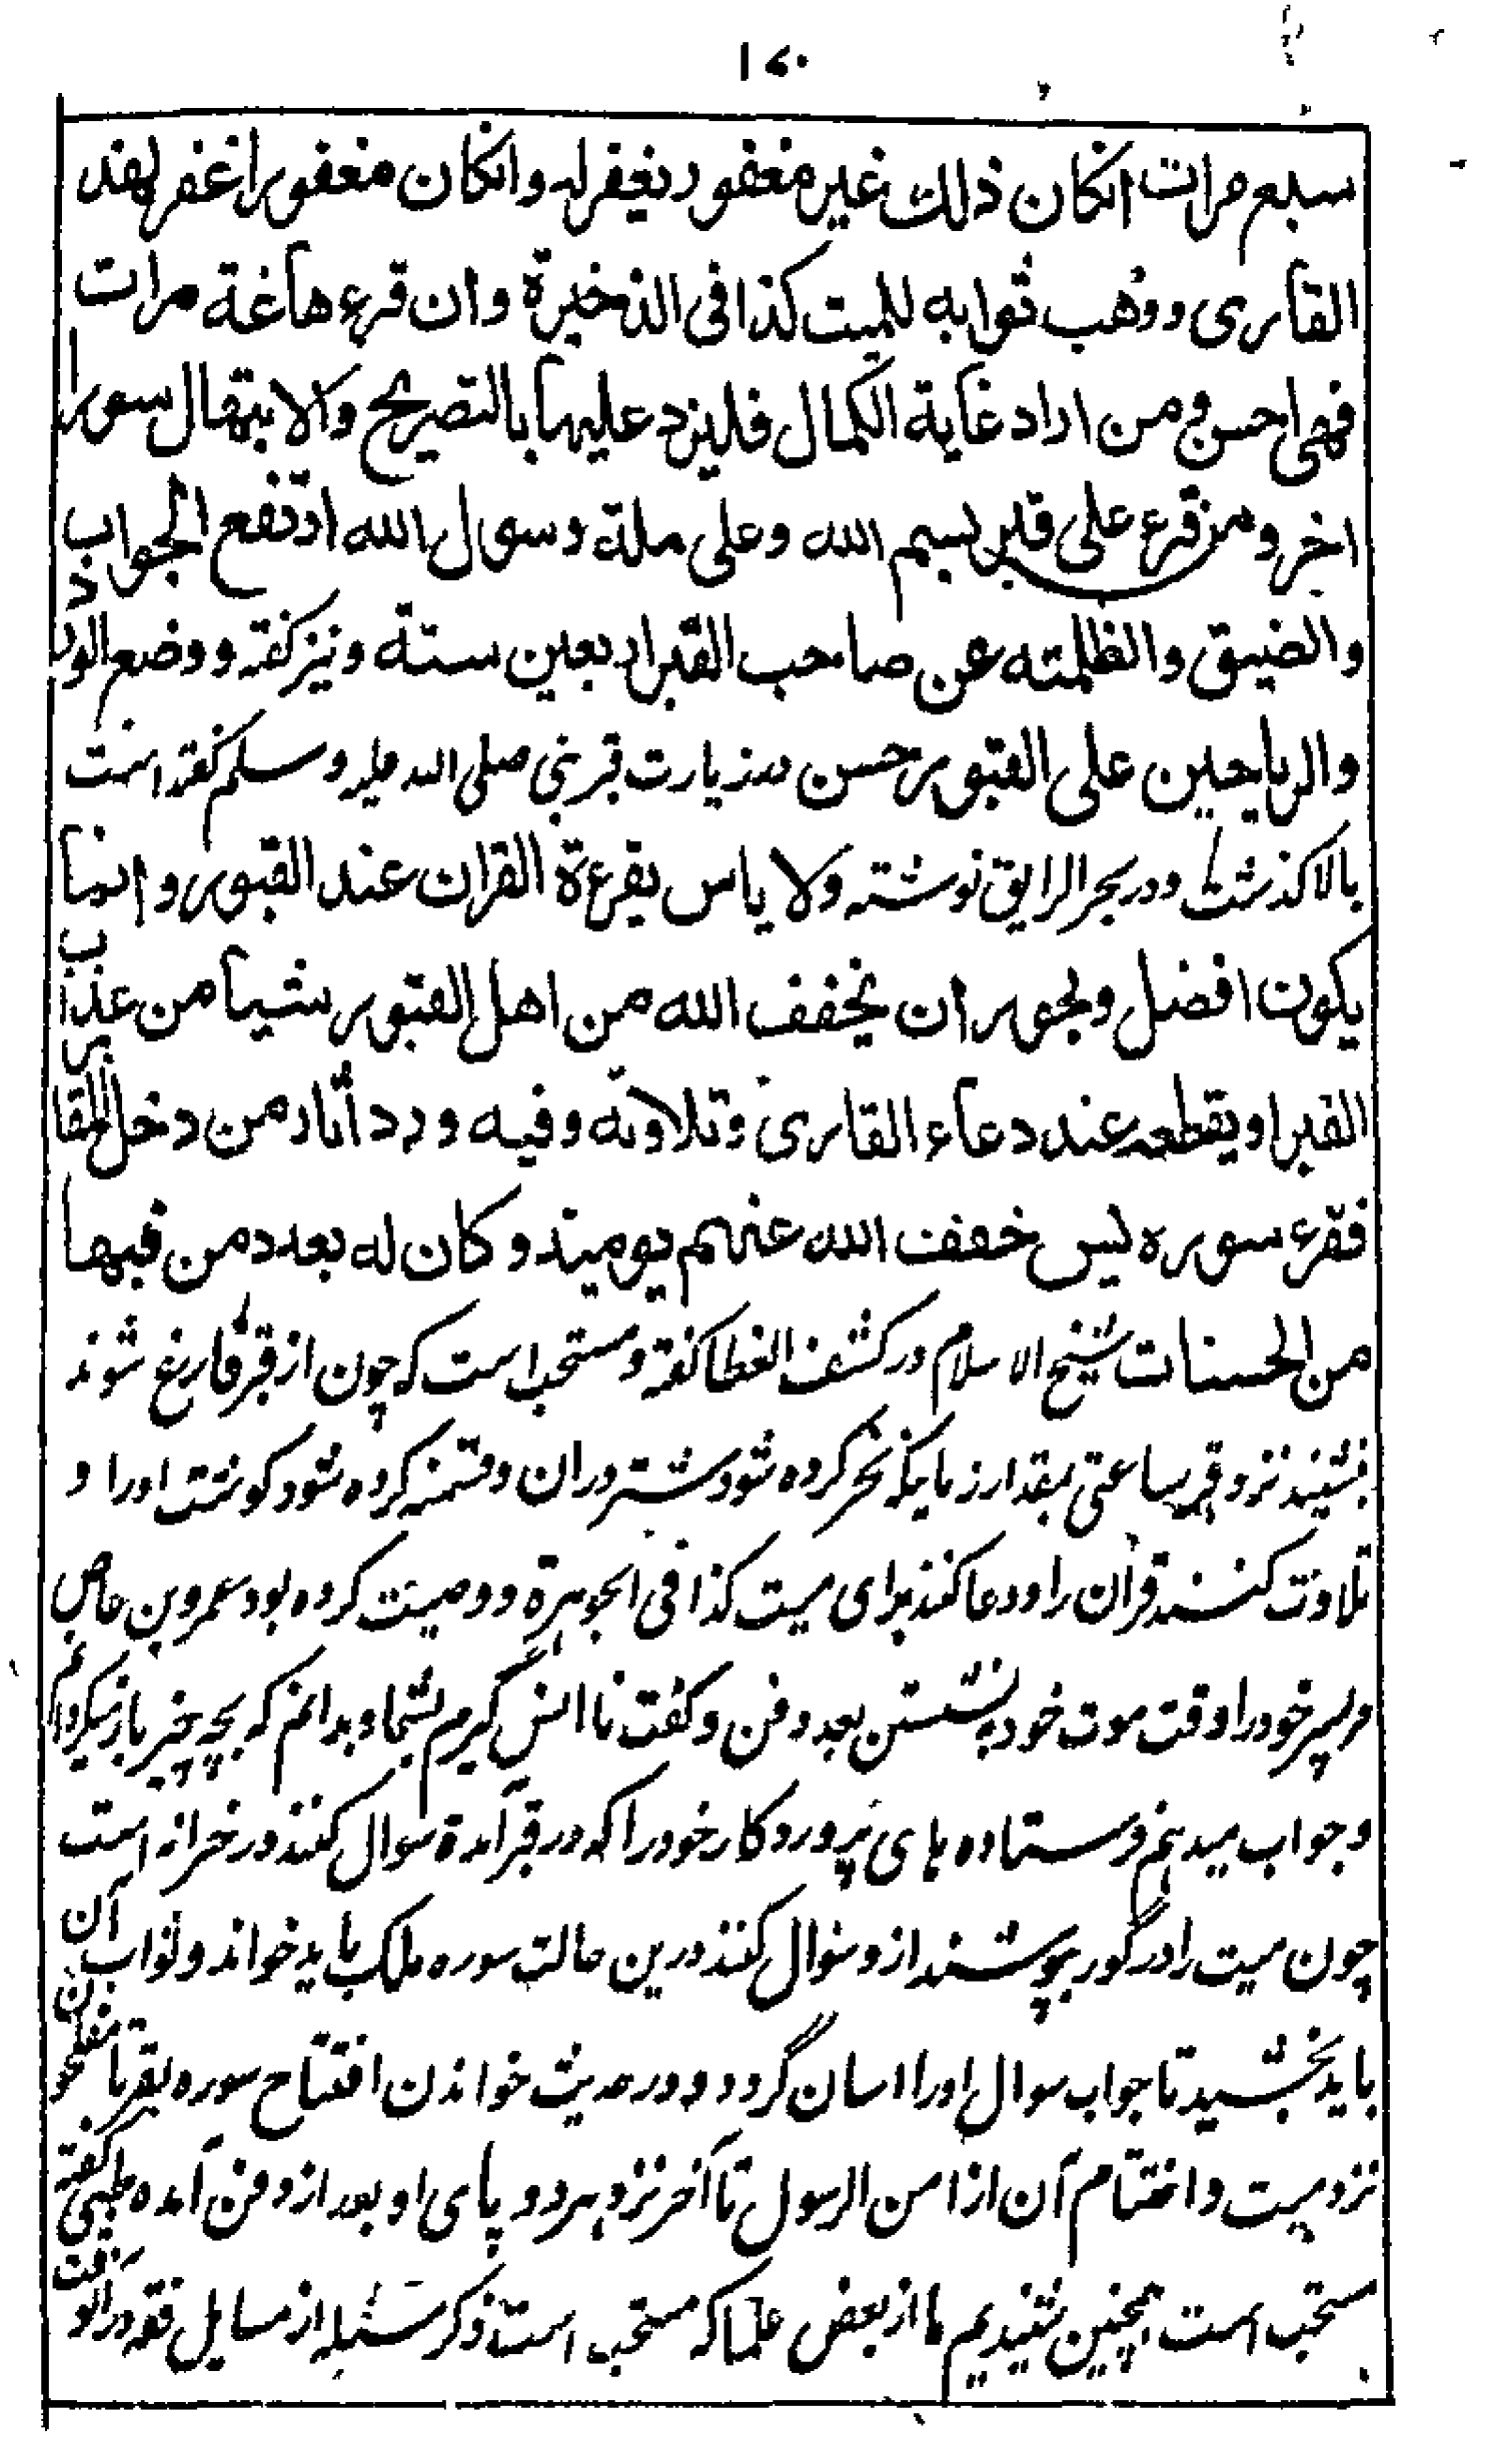 ۱۷۰
سبع مرات انکان ذلک غیر مغفور یغفر له وانکان مغفورا غفر لهذ
القاری ووهب ثوابه للمیت کذا فی الذخیرة وان قرء هاغة مرات
فهی احسن و من اراد غایة الکمال فلیزد علیها بالتصریح والابتهال سورا
اخر و من قرء علی قبر بسم الله وعلی ملة رسول الله ارتفع الجواب
والضیق والظلمته عن صاحب القبر اربعین سنة ونیز گفته ووضع الورد
والریاحین علی القبور حسن در زیارت قبر نبی صلی الله علیه وسلم گفته است
بالا گذشت ودر بحر الرایق نوشته ولا باس بقرءة القران عند القبور وانما
یکون افضل ویجوز ان یخفف الله من اهل القبور شیأ من عذاب
القبر او یقطعه عند دعاء القاری وتلاوته وفیه ورد آثار من دخل المقابر
فقرء سوره یس خفف الله عنهم یومیئذ وکان له بعدد من فیها
من الحسنات شیخ الاسلام در کشف الغطا گفته ومستحب است که چون از قبر فارغ شوند
بنشینند نزد قبر ساعتی بمقدار زمانیکه نحر کرده شود شتر دران وقسمته کرده شود گوشت اورا و
تلاوت کنند قرآن را ودعا کنند برای میت کذا فی الجوهرة ووصیت کرده بود عمرو بن عاص
مر پسر خود را وقت موت خود بنشستن بعد دفن وگفت تا انس گیرم بشما وبدانم که بچه چیز باز میگردانم
وجواب میدهم فرستاده های پروردگار خود را که در قبر آمده سوال کنند در خزانه است
چون میت را در گور بپوشند ازو سوال کنند درین حالت سوره ملک باید خواند وثواب آن
باید بخشید تا جواب سوال اورا اسان گردد ودر حدیث خواندن افتتاح سوره بقر تا مفلحون
نزد میت واختتام آن از امن الرسول تا آخر نزد هردو پای او بعد از دفن آمده طیبی گفته
مستحب است همچنین شنیدیم ما از بعض علما که مستحب است ذکر مسئله از مسایل فقه درانوقت